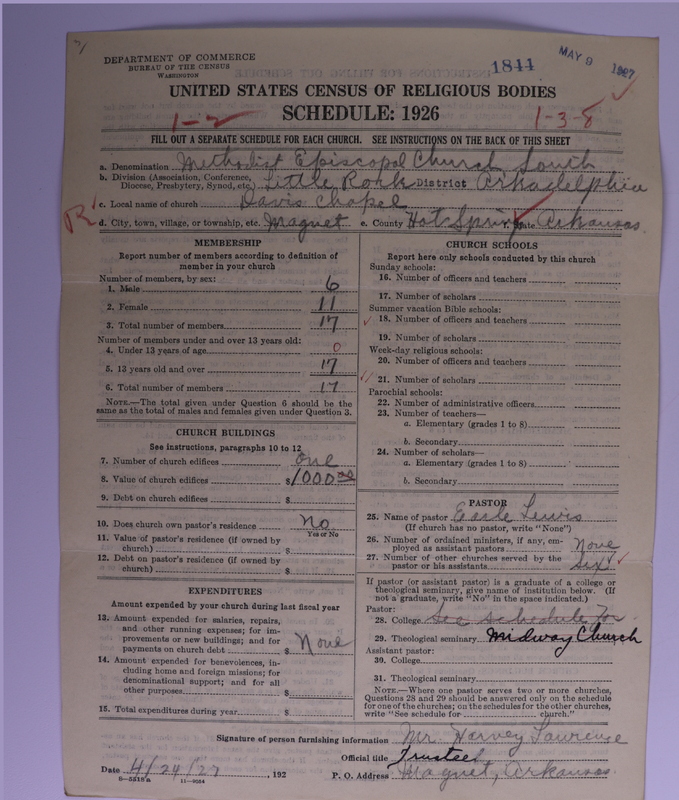 DEPARTMENT OF COMMERCE
BUREAU OF THE CENSUS
WASHINGTON
1844
MAY 9 1927
UNITED STATES CENSUS OF RELIGIOUS BODIES
SCHEDULE: 1926
1-2
1-3-8
FILL OUT A SEPARATE SCHEDULE FOR EACH CHURCH. SEE INSTRUCTIONS ON THE BACK OF THIS SHEET
a. Denomination Methodist Episcopal Church South
b. Division (Association, Conference, Diocese, Presbytery, Synod, etc.) Little Rock District Arkadelphia
c. Local name of church Davis Chapel
R
d. City, town, village, or township, etc. Magnet e. County Hot Spring f. State Arkansas
MEMBERSHIP
Report number of members according to definition of
member in your church
Number of members, by sex:
1. Male 6
2. Female 11
3. Total number of members 17
Number of members under and over 13 years old:
4. Under 13 years of age 0
5. 13 years old and over 17
6. Total number of members 17
NOTE.—The total given under Question 6 should be the
same as the total of males and females given under Question 3.
CHURCH BUILDINGS
See instructions, paragraphs 10 to 12
7. Number of church edifices one
8. Value of church edifices $1000 00
9. Debt on church edifices $
10. Does church own pastor's residence No
Yes or No
11. Value of pastor's residence (if owned by
church) $
12. Debt on pastor's residence (if owned by
church) $
EXPENDITURES
Amount expended by your church during last fiscal year
13. Amount expended for salaries, repairs,
and other running expenses; for im-
provements or new buildings; and for
payments on church debt $ None
14. Amount expended for benevolences, in-
cluding home and foreign missions; for
denominational support; and for all
other purposes $
15. Total expenditures during year $
CHURCH SCHOOLS
Report here only schools conducted by this church
Sunday schools:
16. Number of officers and teachers
17. Number of scholars
Summer vacation Bible schools:
18. Number of officers and teachers
19. Number of scholars
Week-day religious schools:
20. Number of officers and teachers
21. Number of scholars
Parochial schools:
22. Number of administrative officers
23. Number of teachers—
a. Elementary (grades 1 to 8)
b. Secondary
24. Number of scholars—
a. Elementary (grades 1 to 8)
b. Secondary
PASTOR
25. Name of pastor Earle Lewis
(If church has no pastor, write "None")
26. Number of ordained ministers, if any, em-
ployed as assistant pastors None
27. Number of other churches served by the
pastor or his assistants Six
If pastor (or assistant pastor) is a graduate of a college or
theological seminary, give name of institution below. (If
not a graduate, write "No" in the space indicated.)
Pastor:
28. College See schedule for
29. Theological seminary Midway Church
Assistant pastor:
30. College
31. Theological seminary
NOTE.—Where one pastor serves two or more churches,
Questions 28 and 29 should be answered only on the schedule
for one of the churches; on the schedules for the other churches,
write "See schedule for church."
Signature of person furnishing information Mr. Harvey Lawrence
Official title Trustee
Date 4/24/27, 192
P. O. Address Magnet, Arkansas
8-5518a 11-9554